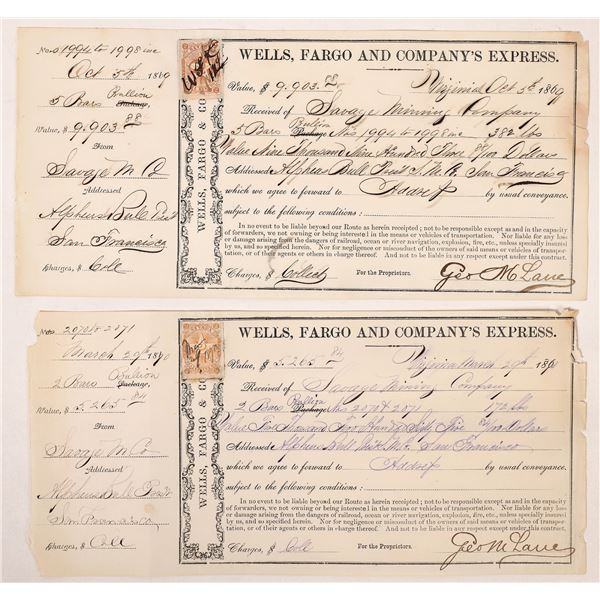 No. 1994 to 1998 inc
Oct 5th 1869
5 Bars Bullion Package,
Value, $ 9.903.88
From
Savage M Co
Addressed
Alpheus Bull Prest
San Francisco
Charges, $ Coll
WELLS, FARGO & CO
WELLS, FARGO AND COMPANY'S EXPRESS.
Value, $ 9.903.88 Virginia Oct 5th 1869
Received of Savage Mining Company
5 Bars Bullion Package Nos 1994 to 1998 inc 382 lbs
Value Nine Thousand Nine Hundred Three 88/100 Dollars
Addressed Alpheus Bull Prest S.M.Co. San Francisco
which we agree to forward to Address by usual conveyance.
subject to the following conditions:
In no event to be liable beyond our Route as herein receipted; not to be responsible except as and in the capacity
of forwarders, we not owning or being interested in the means or vehicles of transportation; nor to be liable for loss
or damage arising from the dangers of railroad, ocean or river navigation, explosion, fire, etc., unless specially insured
by us, and so specified herein. Nor for negligence or misconduct of the owners of said means or vehicles of transporta-
tion, or of their agents or others in charge thereof. And not in any event to any amount, under this contract.
Charges, $ Collect For the Proprietors. Geo M Lane
Nos. 2070 & 2071
March 29th 1870
2 Bars Bullion Package,
Value, $ 5.265.84
From
Savage M Co
Addressed
Alpheus Bull Prest
San Francisco
Charges, $ Coll
WELLS, FARGO & CO
WELLS, FARGO AND COMPANY'S EXPRESS.
Value, $ 5.265.84 Virginia March 29th 18
Received of Savage Mining Company
2 Bars Bullion Package Nos 2070 & 2071 172 lbs
Value Five Thousand Two Hundred Sixty Five Dollars
Addressed Alpheus Bull Prest M.Co. San Francisco
which we agree to forward to Address by usual conveyance.
subject to the following conditions:
In no event to be liable beyond our Route as herein receipted; not to be responsible except as and in the capacity of
forwarders, we not owning or being interested in the means or vehicles of transportation; nor to be liable for loss or
damage arising from the dangers of railroad, ocean or river navigation, explosion, fire, etc., unless specially insured by
us, and so specified herein. Nor for negligence or misconduct of the owners of said means or vehicles of transportation,
or of their agents or others in charge thereof. And not in any event under this contract.
Charges, $ Coll For the Proprietors. Geo M Lane